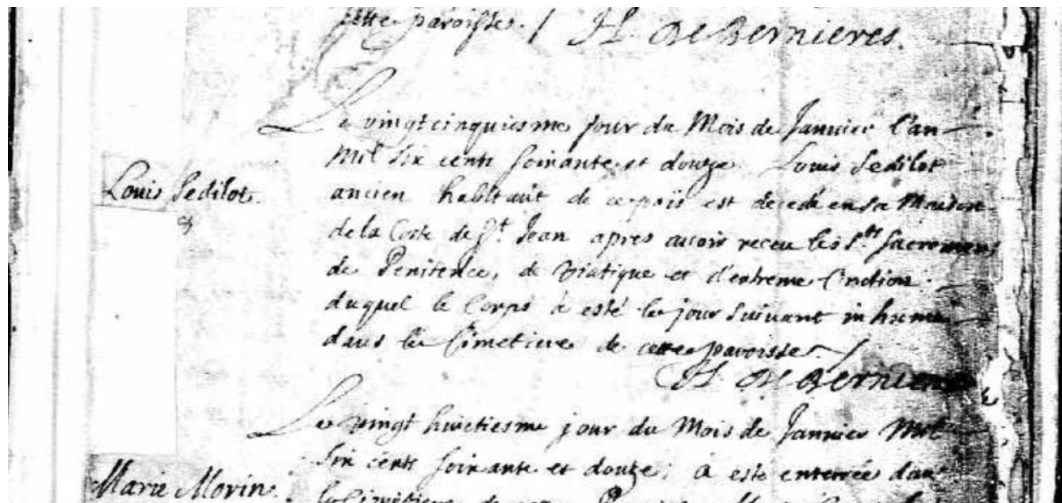 cette paroisse. / H. de Bernieres.
Le vingtcinquiesme jour du Mois de Janvier l'an
Mil six cents soixante et douze Louis Sedilot
Louis Sedilot.
ancien habitant de ce païs est decedé en sa Maison
de la Coste de St. Jean apres avoir receu les Sts Sacremens
de Penitence, de Viatique et d'extreme Onction
duquel le Corps à esté le jour suivant inhumé
dans le Cimetiere de cette paroisse. /
H. de Bernieres
Le vingt huictiesme jour du Mois de Janvier Mil
Six cents soixante et douze, à esté enterrée dans
Marie Morin.
le Cimetiere de